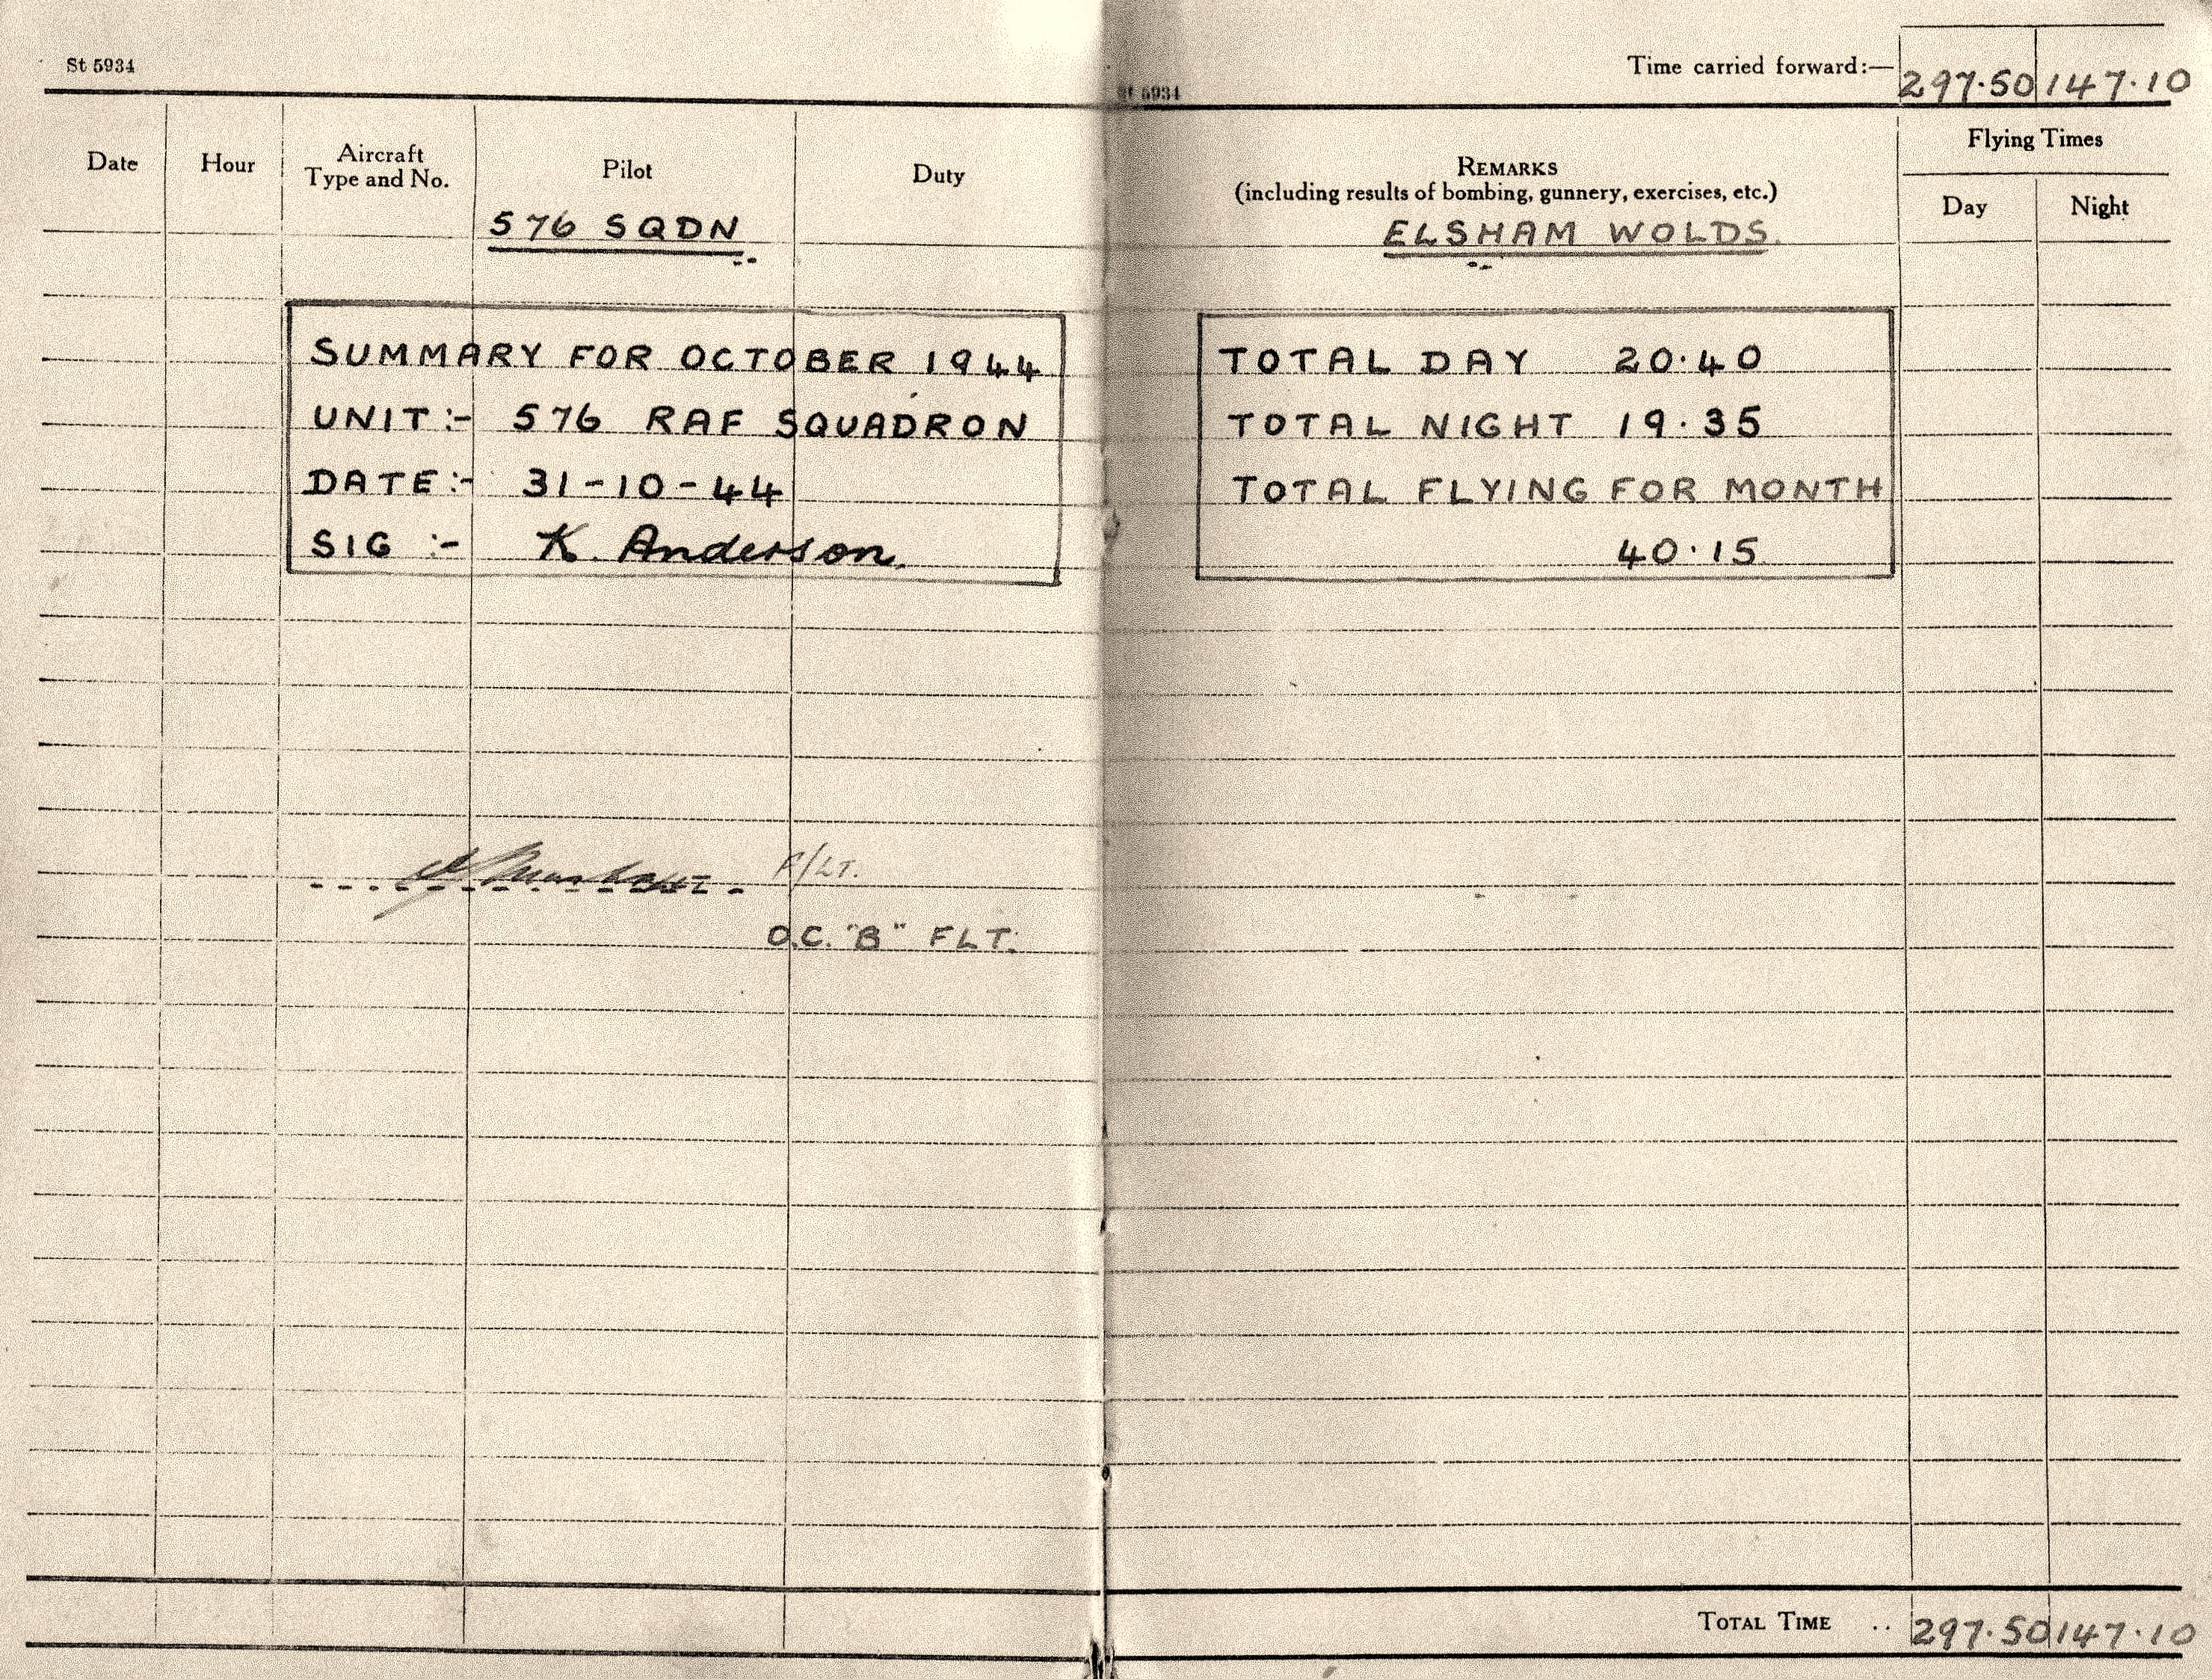 St 5934
Date Hour Aircraft Type and No. Pilot Duty
576 SQDN
SUMMARY FOR OCTOBER 1944
UNIT:- 576 RAF SQUADRON
DATE:- 31-10-44
SIG :- K. Anderson.
F/LT.
O.C. "B" FLT.
St 5934
Time carried forward:— 297.50 147.10
REMARKS
(including results of bombing, gunnery, exercises, etc.)
Flying Times
Day Night
ELSHAM WOLDS.
TOTAL DAY 20.40
TOTAL NIGHT 19.35
TOTAL FLYING FOR MONTH
40.15
TOTAL TIME .. 297.50 147.10